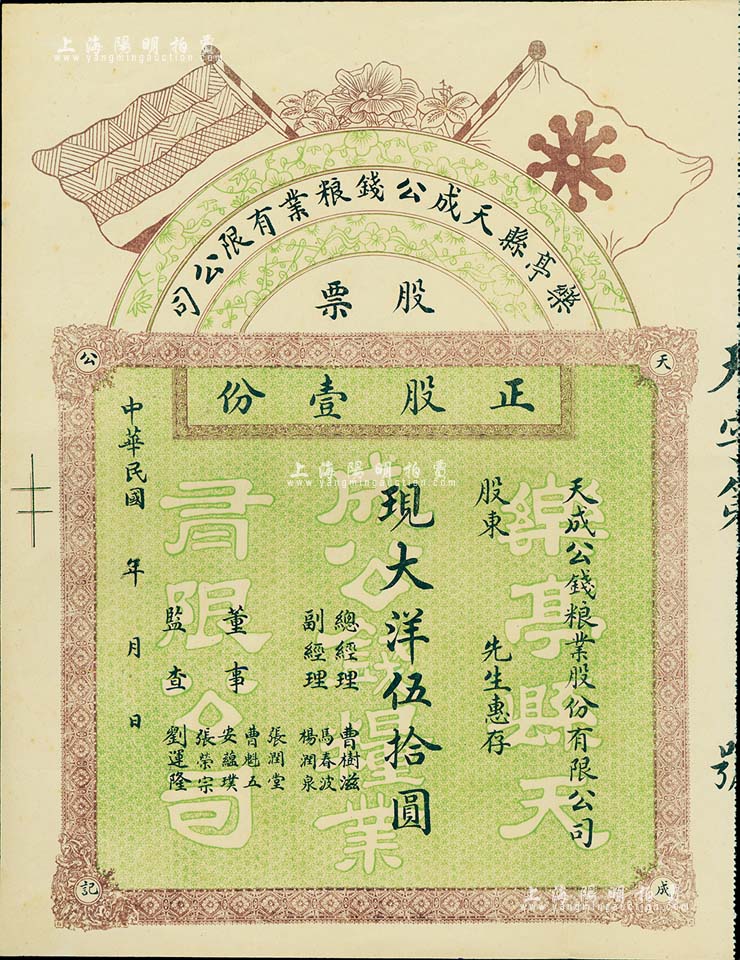 上海陽明拍賣
www.yangmingauction.com
樂亭縣天成公錢粮業有限公司
股票
天
成
公
記
正股壹份
天成公錢粮業股份有限公司
股東 先生惠存
現大洋伍拾圓
總經理 曹樹滋
副經理 馬春波
楊潤泉
董事 張潤堂
曹魁五
安蘊璞
監查 張榮宗
劉運隆
中華民國 年 月 日
樂亭縣天
成公錢糧業
有限公司
天字第 號
上海陽明拍賣
www.yangmingauction.com
上海陽明拍賣
www.yangmingauction.com